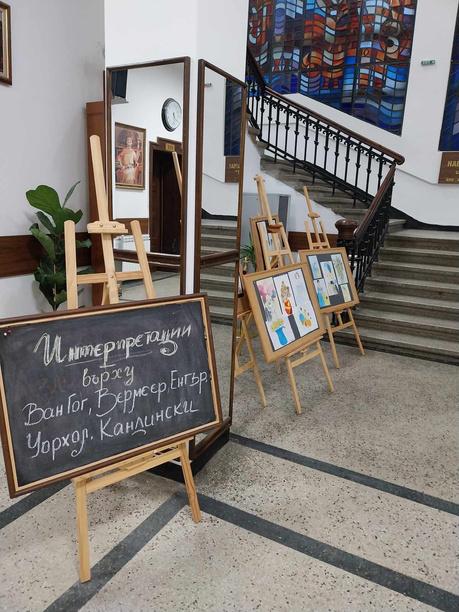 Интерпретации
върху
Ван Гог, Вермеер Енгър.
Уорхол. Кандински